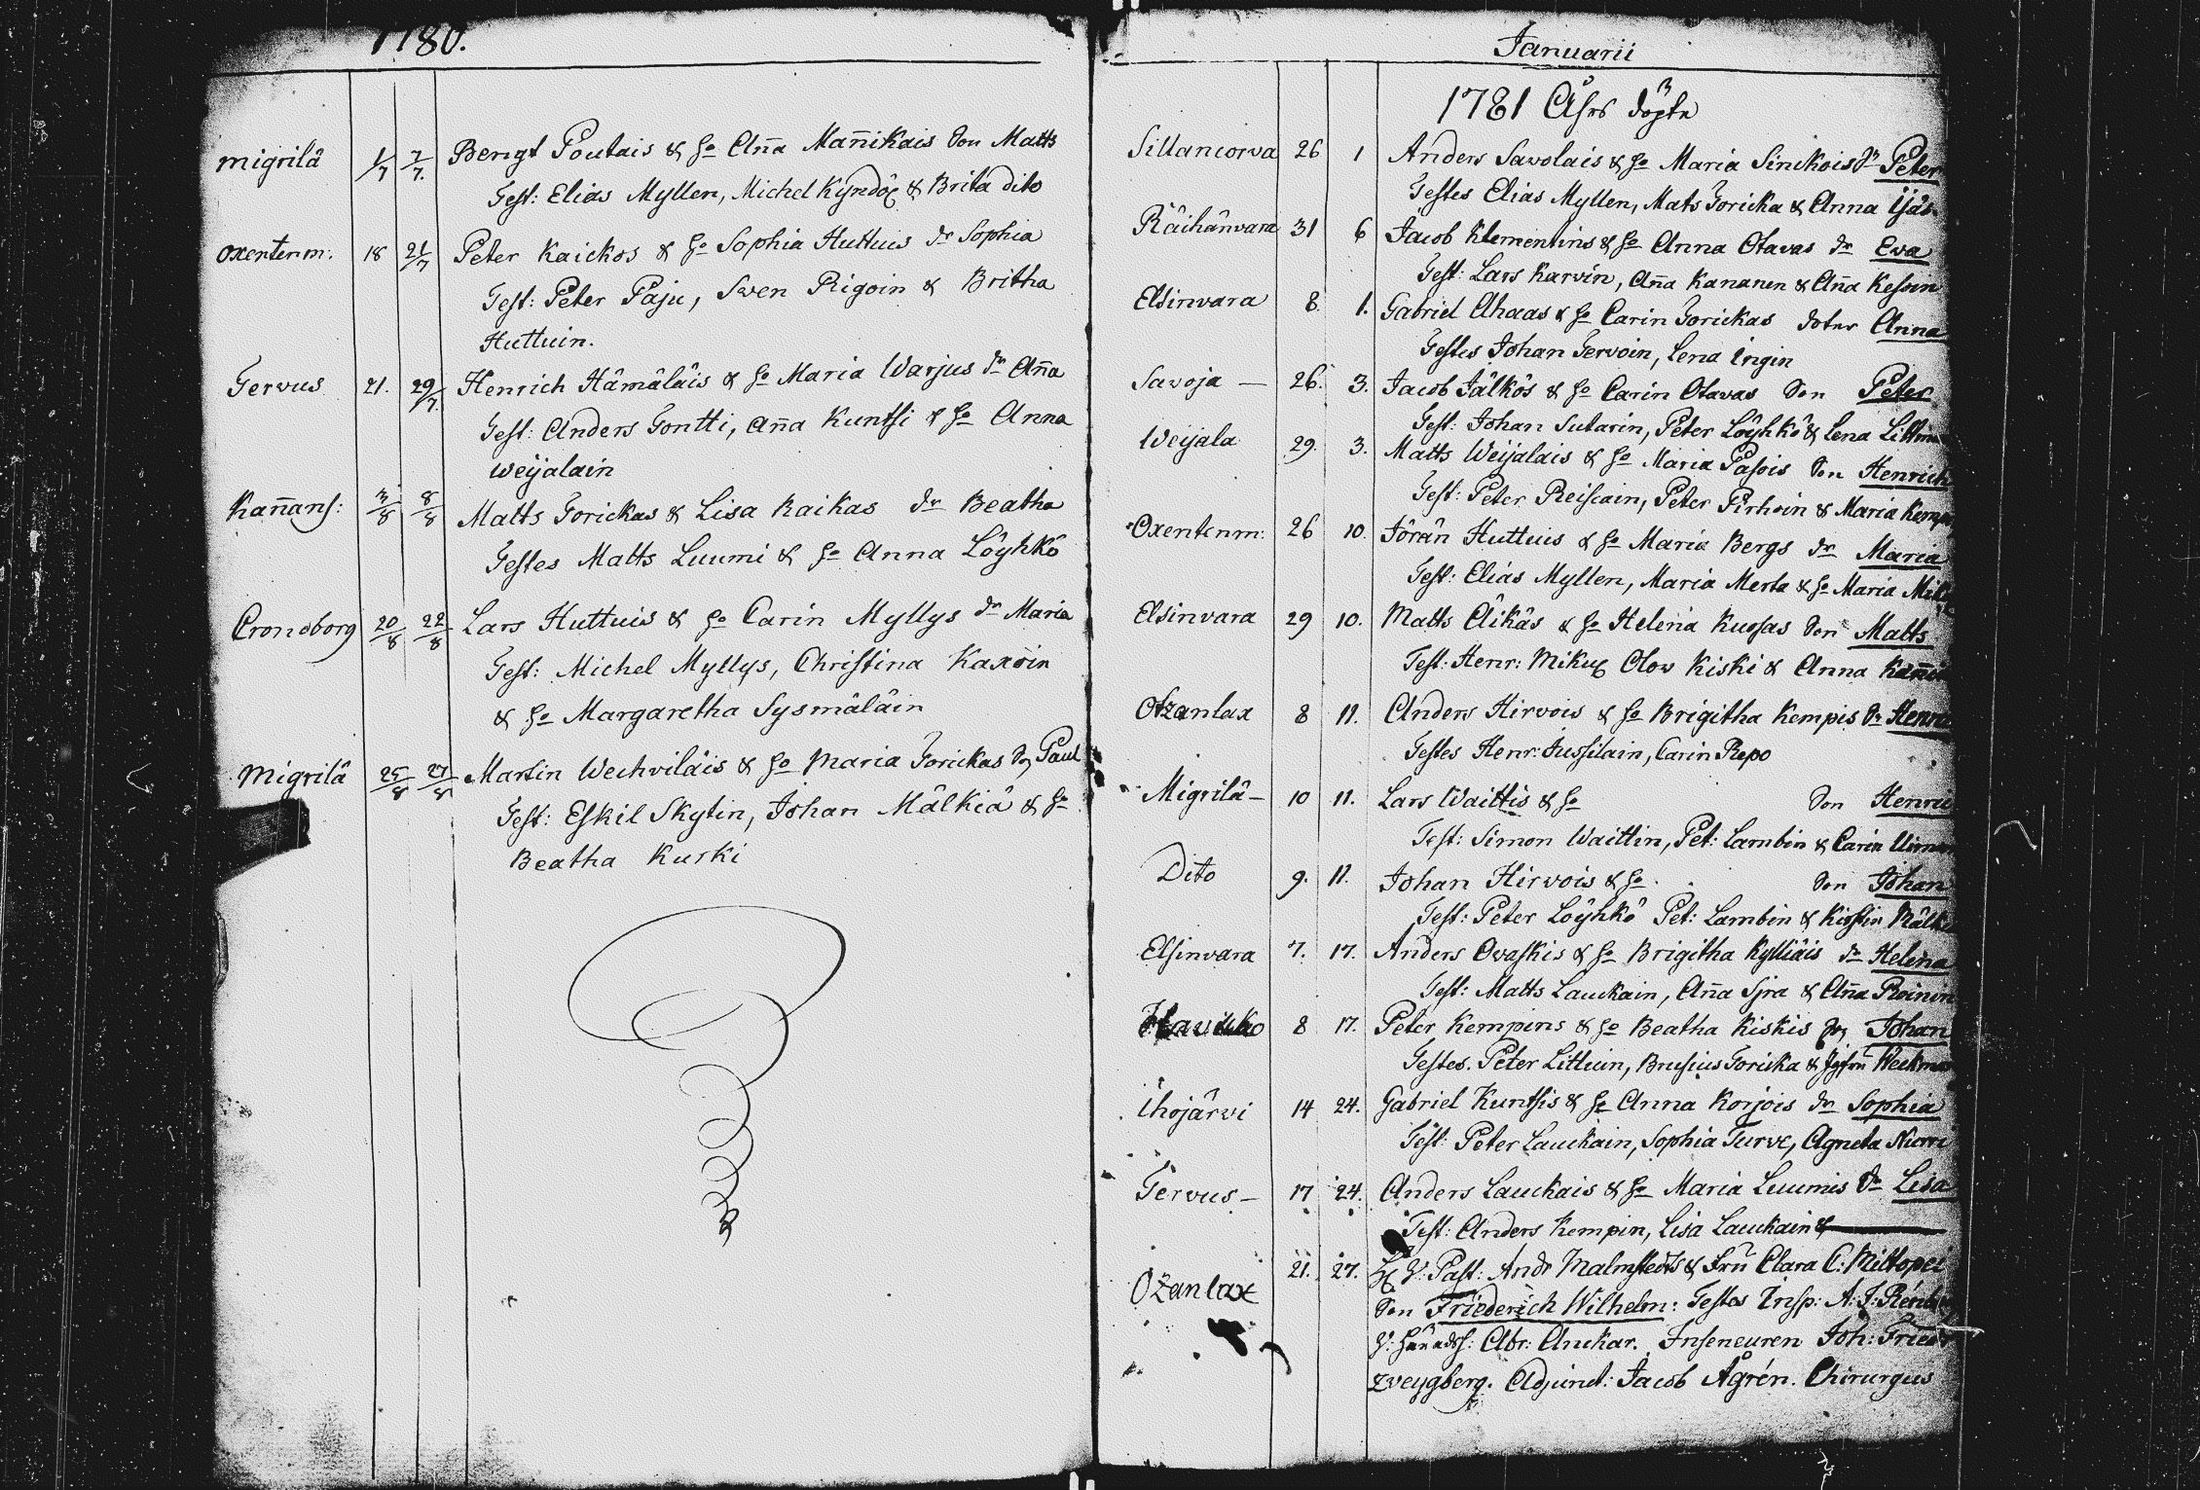 1780.
Migrilä 1/7 7/7. Bengt Poutais & ho Anña Mañikais son Matts
Test: Elias Myllen, Michel Kyndöx & Brita dito
Oxentenm: 18 21/7 Peter Kaickos & ho Sophia Huttuis dr Sophia
Test: Peter Paju, Swen Rigoin & Britha
Huttuin.
Tervus 21. 29/7. Henrich Hämäläis & ho Maria Warjus dr Aña
Test: Anders Tontti, Aña Kuntsi & ho Anna
Weijalain
Kañans: 3/8 8/8 Matts Torickas & Lisa Kaikas dr Beatha
Testes Matts Luumi & ho Anna Löyhkö
Cronoborg 20/8 22/8 Lars Huttuis & ho Carin Myllys dr Maria
Test: Michel Myllys, Christina Kaxöin
& ho Margaretha Sysmäläin
Migrilä 25/8 27/8 Martin Wechviläis & ho Maria Torickas son Paul
Test: Eskil Skytin, Johan Mälkiä & ho
Beatha Kurki
Januarii
1781 Åhrs döpta
Sillancorva 26 1 Anders Savolais & ho Maria Sinckois sn Peter
Testes Elias Myllen, Mats Toricka & Anna Ijäs
Räihänvara 31 6 Jacob Klementins & ho Anna Otavas dr Eva
Test: Lars Karvin, Aña Kananen & Aña Kessin
Elsinvara 8. 1. Gabriel Ahaas & ho Carin Torickas doter Anna
Testes Johan Tervoin, Lena Ingin
Savoja — 26. 3. Jacob Jälkös & ho Carin Otavas son Peter
Test: Johan Sutarin, Peter Löyhkö & Lena
Weijala 29. 3. Matts Weijalais & ho Maria Pasois son Henrich
Test: Peter Reiscain, Peter Pirhoin & Maria
Oxentenm: 26 10. Jöran Huttuis & ho Maria Bergs dr Maria
Test: Elias Myllen, Maria Merta & ho Maria
Elsinvara 29 10. Matts Äikäs & ho Helena Kuosas son Matts
Test: Henr: Mikux Olov Kiski & Anna
Otzanlax 8 11. Anders Hirvois & ho Brigitha Kempis sn
Testes Henr: Jussilain, Carin Repo
Migrilä — 10 11. Lars Waittis & ho son
Test: Simon Waittin, Pet: Lambin & Carin
Dito 9. 11. Johan Hirvois & ho son Johan
Test: Peter Löyhkö Pet: Lambin & Kirstin
Elsinvara 7. 17. Anders Ovaskis & ho Brigitha Kylliäis dr Helena
Test: Matts Lauckain, Aña Sjra & Aña Roinin
8 17. Peter Kempins & ho Beatha Kiskis son Johan
Testes. Peter Littuin, Brusius Toricka &
Ihojärvi 14 24. Gabriel Kuntsis & ho Anna Korjois dr Sophia
Test: Peter Lauckain, Sophia Turve, Agneta
Tervus — 17 24. Anders Lauckais & ho Maria Luumis dr Lisa
Test: Anders Kempin, Lisa Lauckain &
Ozanlax 21. 27. V: Past: Andr Malmstedts & Fru Clara C: Mittopei
son Friederich Wilhelm: Testes Insp: A: J:
V: häradsh: Abr: Anckar. Inseneuren Joh: Friedr
Zveygberg. Adjunct: Jacob Ågrén. Chirurgus